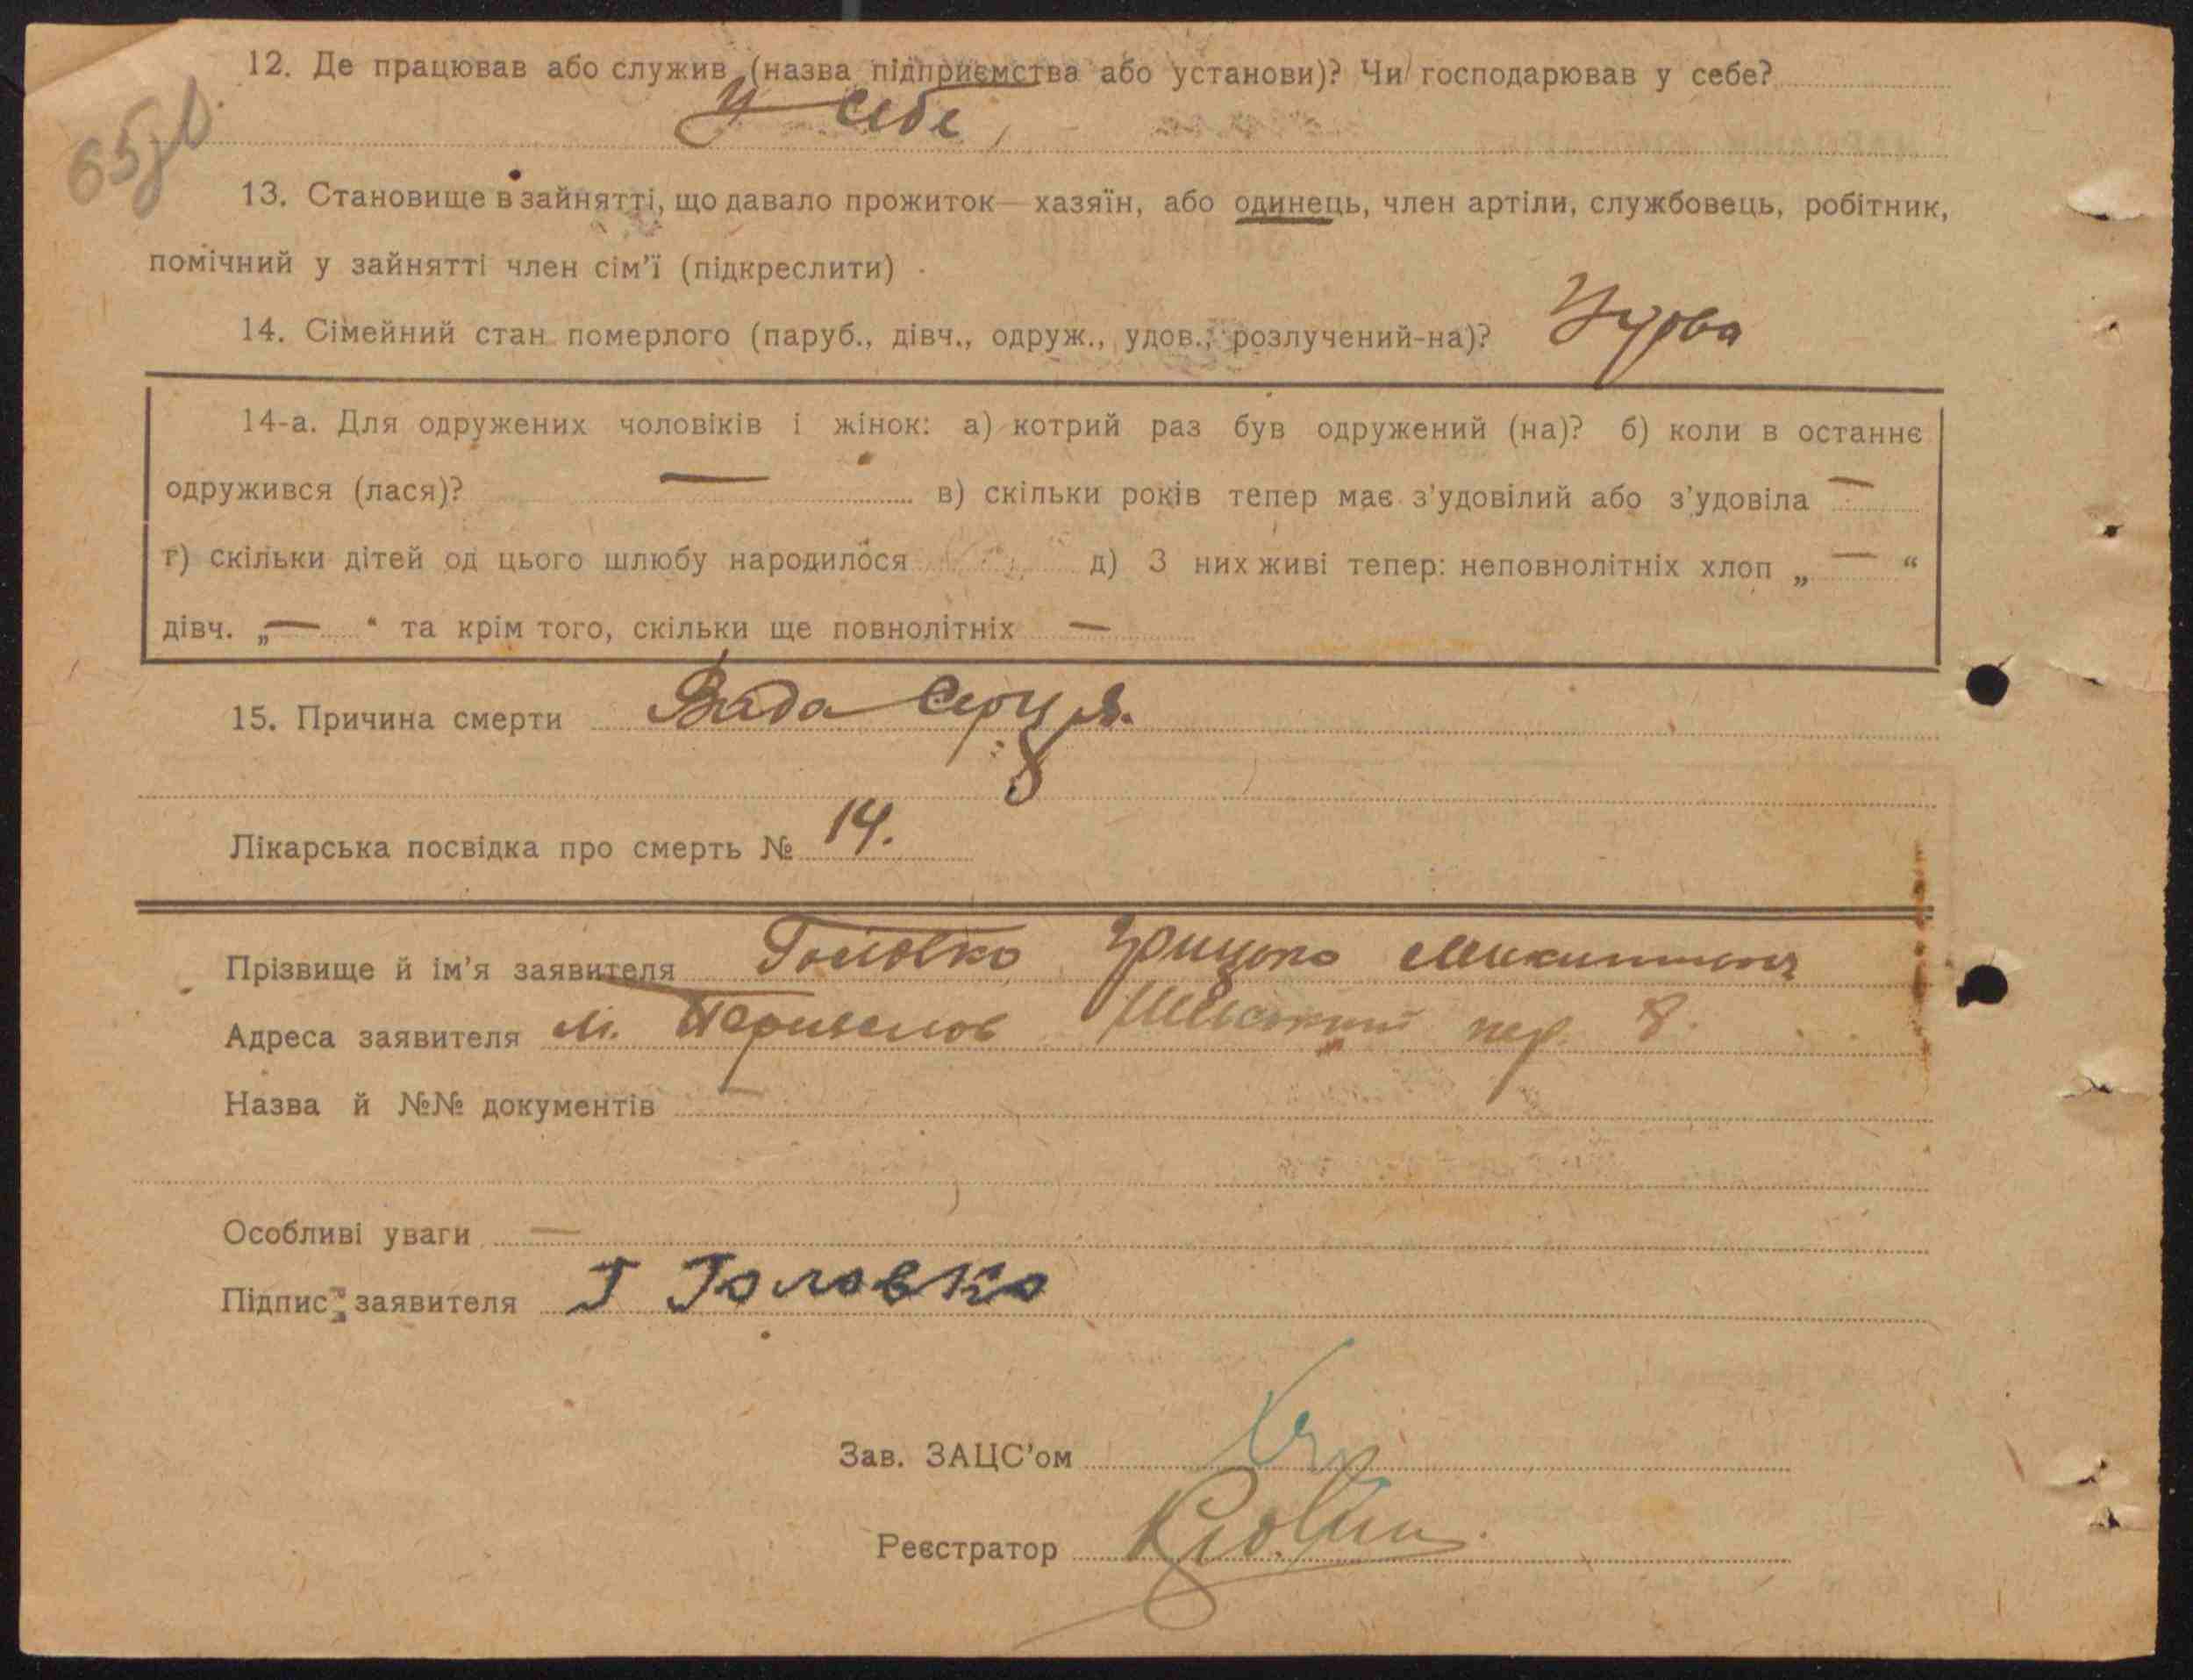 65зв.
12. Де працював або служив (назва підприємства або установи)? Чи господарював у себе?
у себе
13. Становище в зайнятті, що давало прожиток — хазяїн, або одинець, член артіли, службовець, робітник,
помічний у зайнятті член сім'ї (підкреслити)
14. Сімейний стан померлого (паруб., дівч., одруж., удов., розлучений-на)? Удова
14-а. Для одружених чоловіків і жінок: а) котрий раз був одружений (на)? б) коли в останнє
одружився (лася)? — в) скільки років тепер має з'удовілий або з'удовіла —
г) скільки дітей од цього шлюбу народилося д) З них живі тепер: неповнолітніх хлоп „ — “
дівч. „ — “ та крім того, скільки ще повнолітніх —
15. Причина смерти Вада серця.
Лікарська посвідка про смерть № 14.
Прізвище й ім'я заявителя Головко Грицько Микитович
Адреса заявителя м. пер. 8.
Назва й №№ документів —
Особливі уваги —
Підпис заявителя Г Головко
Зав. ЗАЦС'ом
Реєстратор